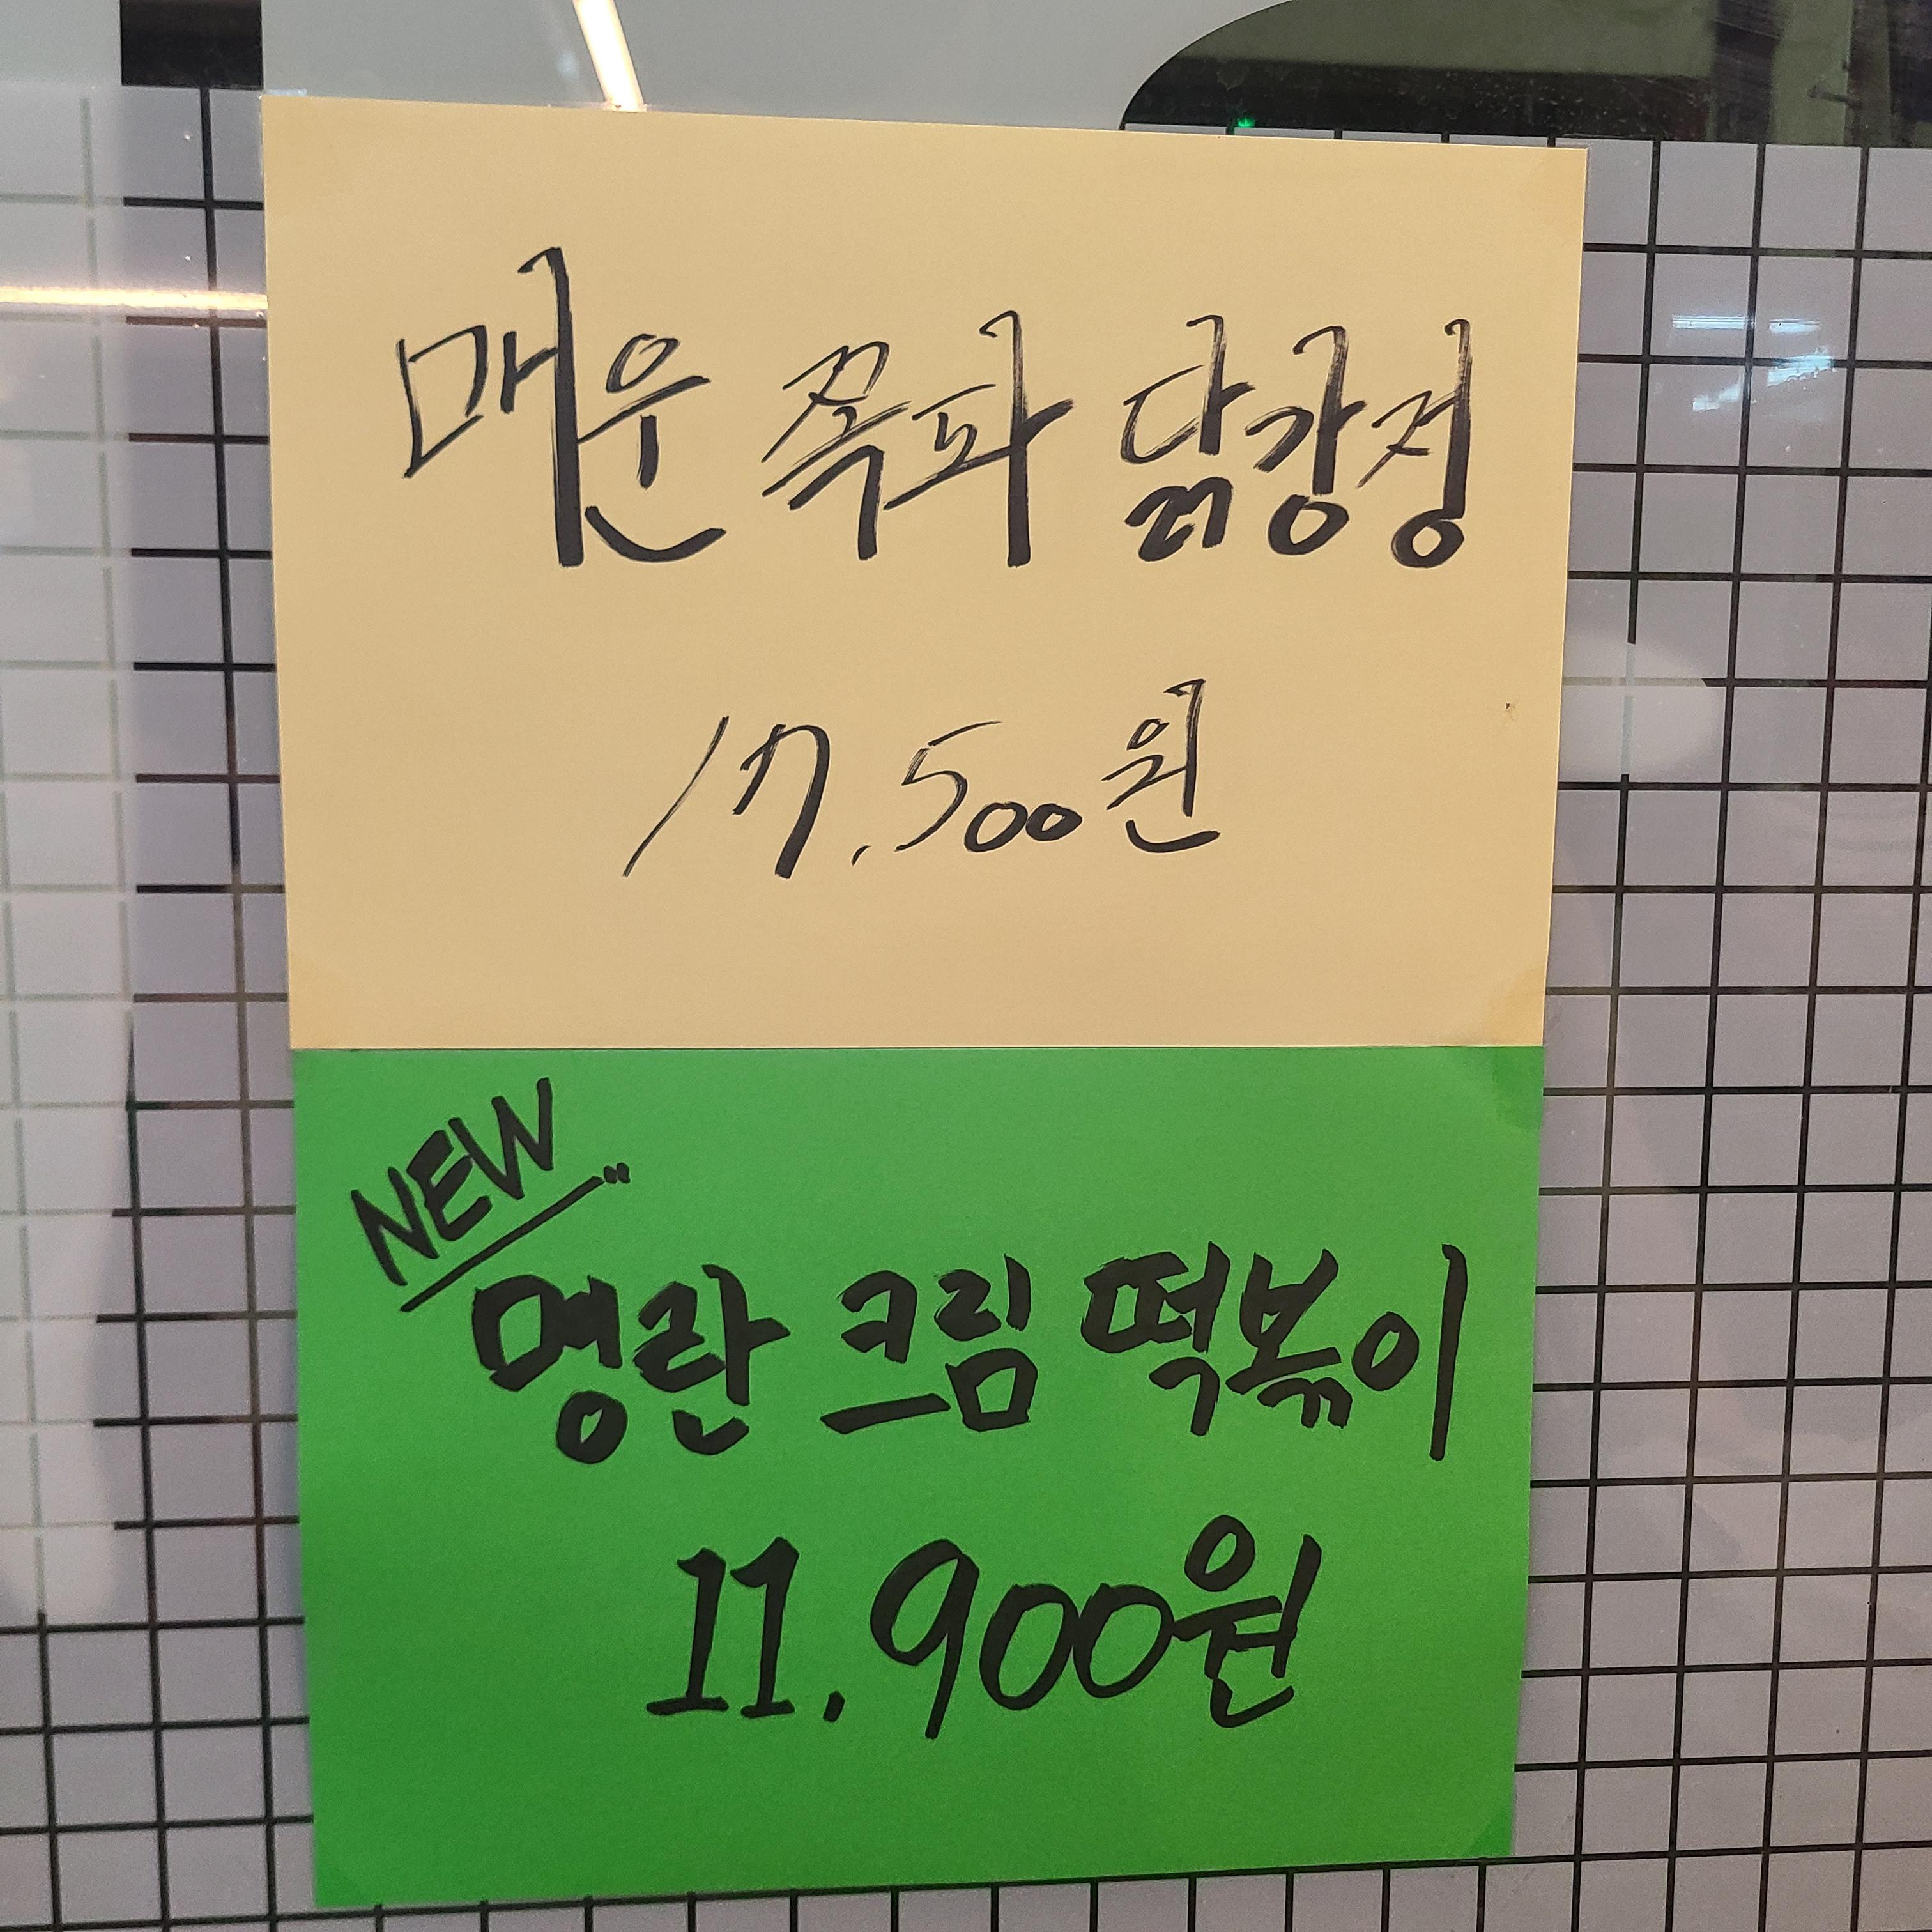 매운 쪽파 닭강정
17.500원
NEW
명란 크림 떡볶이
11.900원